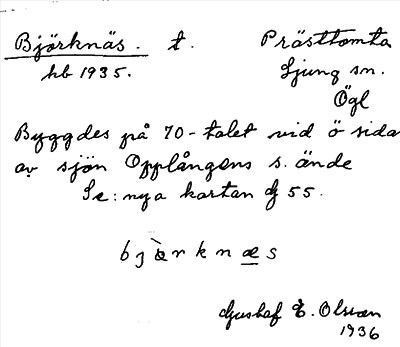 Björknäs. t. Prästtomta
hb 1935. Ljung sn.
Ögl
Byggdes på 70-talet vid ö sida
av sjön Opplångens s. ände
Se: nya kartan 55.
Gustaf E. Olsson
1936